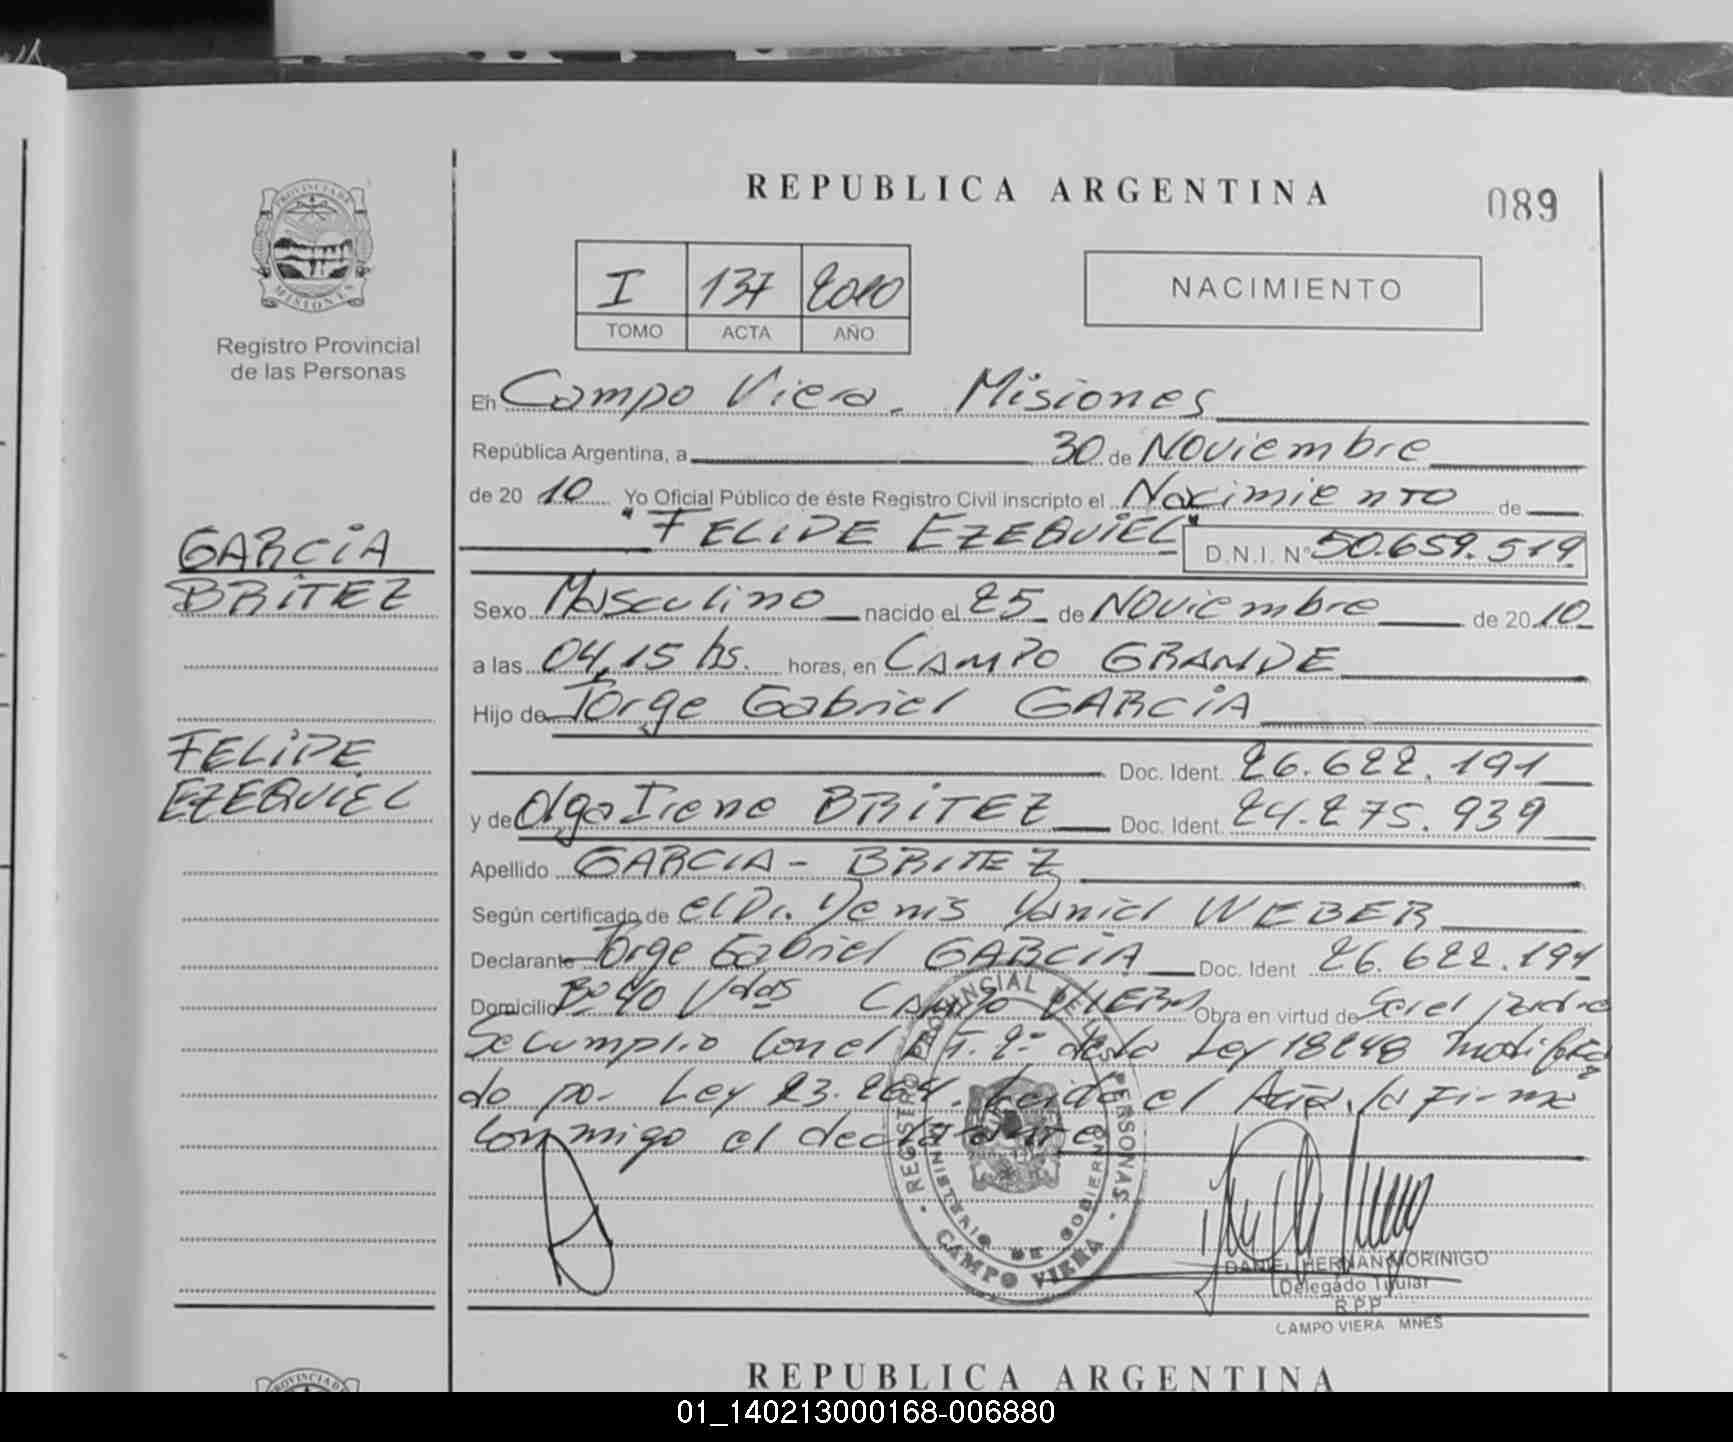 REPUBLICA ARGENTINA
089
PROVINCIA DE
MISIONES
Registro Provincial
de las Personas
I 137 2010
TOMO ACTA AÑO
NACIMIENTO
En Campo Viera. Misiones
República Argentina, a 30 de Noviembre
de 20 10 Yo Oficial Público de éste Registro Civil inscripto el Nacimiento de
"FELIPE EZEQUIEL" D.N.I. Nº 50.659.519
GARCIA
BRITEZ
FELIPE
EZEQUIEL
Sexo Masculino nacido el 25 de Noviembre de 20 10
a las 04,15 hs. horas, en CAMPO GRANDE
Hijo de Jorge Gabriel GARCIA
Doc. Ident. 26.622.191
y de Olga Irene BRITEZ Doc. Ident. 24.275.939
Apellido GARCIA - BRITEZ
Según certificado de el Dr. Yenis Yaniel WEBER
Declarante Jorge Gabriel GARCIA Doc. Ident 26.622.191
Domicilio Bº 40 Vdas CAMPO VIERA Obra en virtud de Ser el padre
Se cumplio con el Art. 2º de la Ley 18248 modifica
do por Ley 23.264. Leida el Acta, la Firma
conmigo el declarante
REGISTRO PROVINCIAL DE LAS PERSONAS
MINISTERIO DE GOBIERNO
CAMPO VIERA
DANIEL HERNAN MORINIGO
Delegado Titular
R.P.P
CAMPO VIERA MNES
PROVINCIA D
REPUBLICA ARGENTINA
01_140213000168-006880